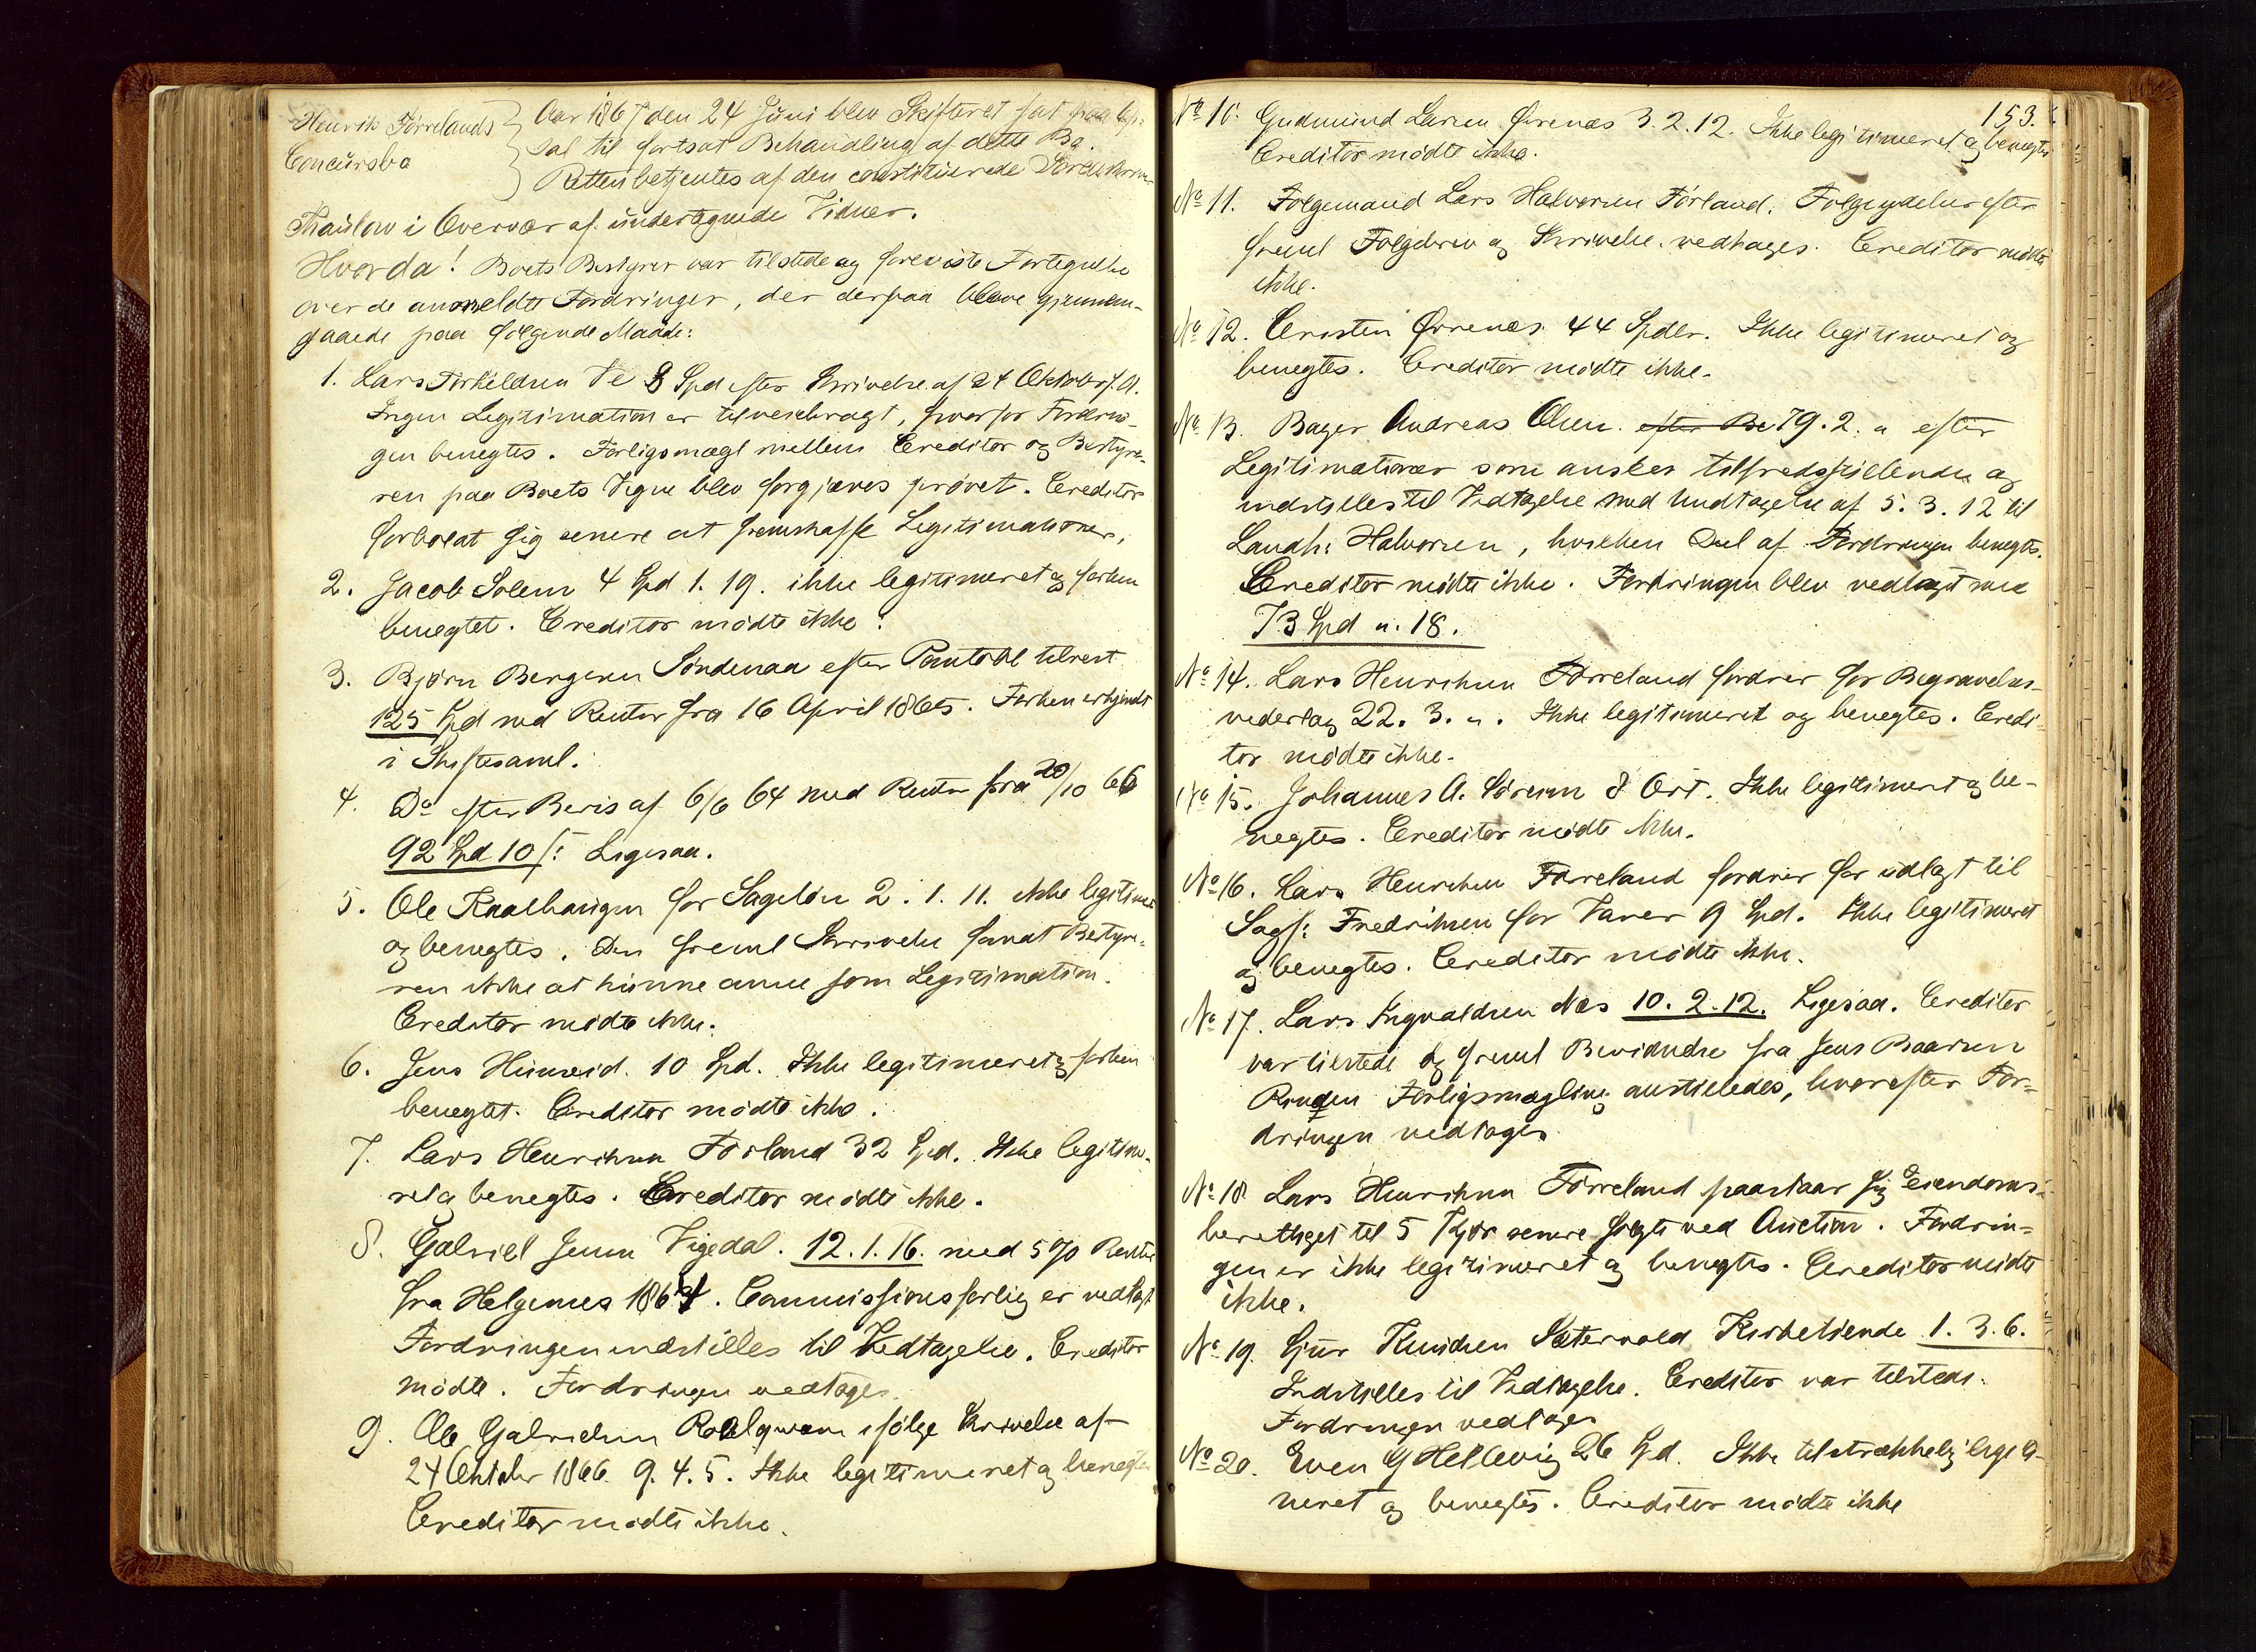 Henrik Förrelands
Concursbo
Aar 1867 den 24 Juni blev Skifteret sat paa
Sal til fortsat Behandling af dette Bo.
Retten betjentes af den constituerede Sorenskriver
Thaulow i Overvær af undertegnede Vidner.
Hvorda! Boets Bestyrer var tilstede og foreviste Fortegnelse
over de anmeldte Fordringer, der derpaa bleve gjennem-
gaaede paa følgende Maade:
1. Lars Torkildsen Te 8 Spd efter Skrivelse af 24 Oktober f. A.
Ingen Legitimation er tilveiebragt, hvorfor Fordrin-
gen benegtes. Forligsmægl mellem Creditor og Bestyre-
ren paa Boets Vegne blev forgjæves prøvet. Creditor
forbeholdt sig senere at fremskaffe Legitimationer.
2. Jacob Solem 4 Spd 1. 19. ikke legitimeret og forhen
benegtet. Creditor mødte ikke.
3. Bjørn Bergesen Söndenaa efter Pantobl tilrest
125 Spd med Renter fra 16 April 1865. Forhen erkjendt
i Skiftesaml.
4. Do efter Bevis af 6/6 64 med Renter fra 20/10 66
92 Spd 10 s: Ligesaa.
5. Ole Kaalhaugen for Sagelön 2. 1. 11. ikke legitime
og benegtes. Den freml Skrivelse fandt Bestyre-
ren ikke at kunne ansee som Legitimation.
Creditor mødte ikke.
6. Jens Hinnereid. 10 Spd. Ikke legitimeret og forhen
benegtet. Creditor mødte ikke.
7. Lars Henriksen Förland 32 Spd. Ikke legitime-
ret og benegtes. Creditor mödte ikke.
8. Gabriel Jensen Vigedal. 12. 1. 16. med 5 % Rente
fra Helgemes 1864. Commissionsforlig er vedlagt
Fordringen indstilles til Vedtagelse. Creditor
mødte. Fordringen vedtages.
9. Ole Gabrielsen Roalqvam ifølge Skrivelse af
24 Oktober 1866 9. 4. 5. Ikke legitimeret og benegtes
Creditor mødte ikke.
153.
No 10. Gudmund Larsen Örenæs 3. 2. 12. Ikke legitimeret og benegtes
Creditor mødte ikke.
No 11. Folgemand Lars Halvorsen Förland. Folgeydelser efter
freml Folgebrev og Skrivelse. vedtages. Creditor mødte
ikke.
No 12. Cristen Örrenæs 44 Spdlr. Ikke legitimeret og
benegtes. Creditor mødte ikke.
No 13. Bager Andreas Olsen. efter Be 79. 2. " efter
Legitimationer som ansees tilfredsstillende og
indstilles til Vedtagelse med Undtagelse af 5. 3. 12 til
Landh: Halvorsen, hvilken Deel af Fordringen benegtes.
Creditor mødte ikke. Fordringen blev vedtaget med
73 Spd ". 18.
No 14. Lars Henriksen Förreland fordrer for Begravelses-
vederlag 22. 3. ". Ikke legitimeret og benegtes. Credi-
tor mødte ikke.
No 15. Johannes A. Söreim 8 Ort. Ikke legitimeret og be-
negtes. Creditor mødte ikke.
No 16. Lars Henriksen Förreland fordrer for udlagt til
Sagf: Fredriksen for Varer 9 Spd. Ikke legitimeret
og benegtes. Creditor mødte ikke.
No 17. Lars Ingvaldsen Næs 10. 2. 12. Ligesaa. Creditor
var tilstede og freml Bevidnelse fra Jens Baarsen
Forligsmægling anstilledes, hvorefter For-
dringen vedtages
No 18 Lars Henriksen Förreland paastaar sig Eiendoms-
berettiget til 5 Kjør senere solgte ved Auction. Fordrin-
gen er ikke legitimeret og benegtes. Creditor mødte
ikke.
No 19. Sjur Knudsen Sætervold Kirketiende 1. 3. 6.
Indstilles til Vedtagelse. Creditor var tilstede.
Fordringen vedtages
No 20. Even G Hellevig 26 Spd. Ikke tilstrækkelig legiti-
meret og benegtes. Creditor mødte ikke